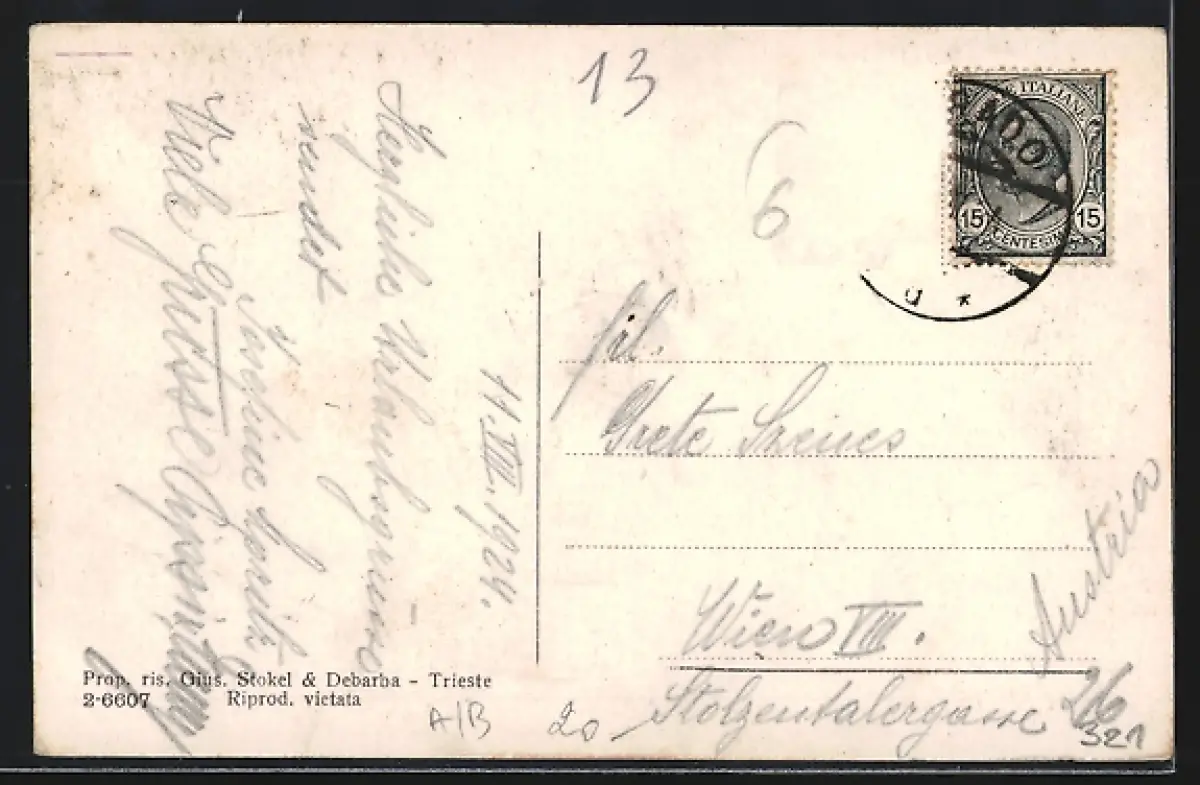 11.VIII.1924.
Herzliche Urlaubsgrüsse
sendet
Viele Grüsse
13
6
ITALIANE
15 15
CENTESIMI
Frl.
Grete Szenes
Wien VIII.
Stolzentalergasse 26
Austria
Prop. ris. Gius. Stokel & Debarba - Trieste
2-6607 Riprod. vietata
A/B
20.-
321